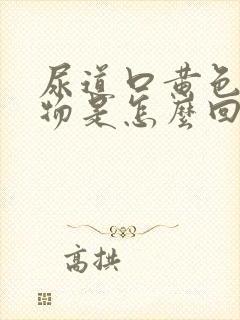 尿道口黄色
物是怎麼回
高拱